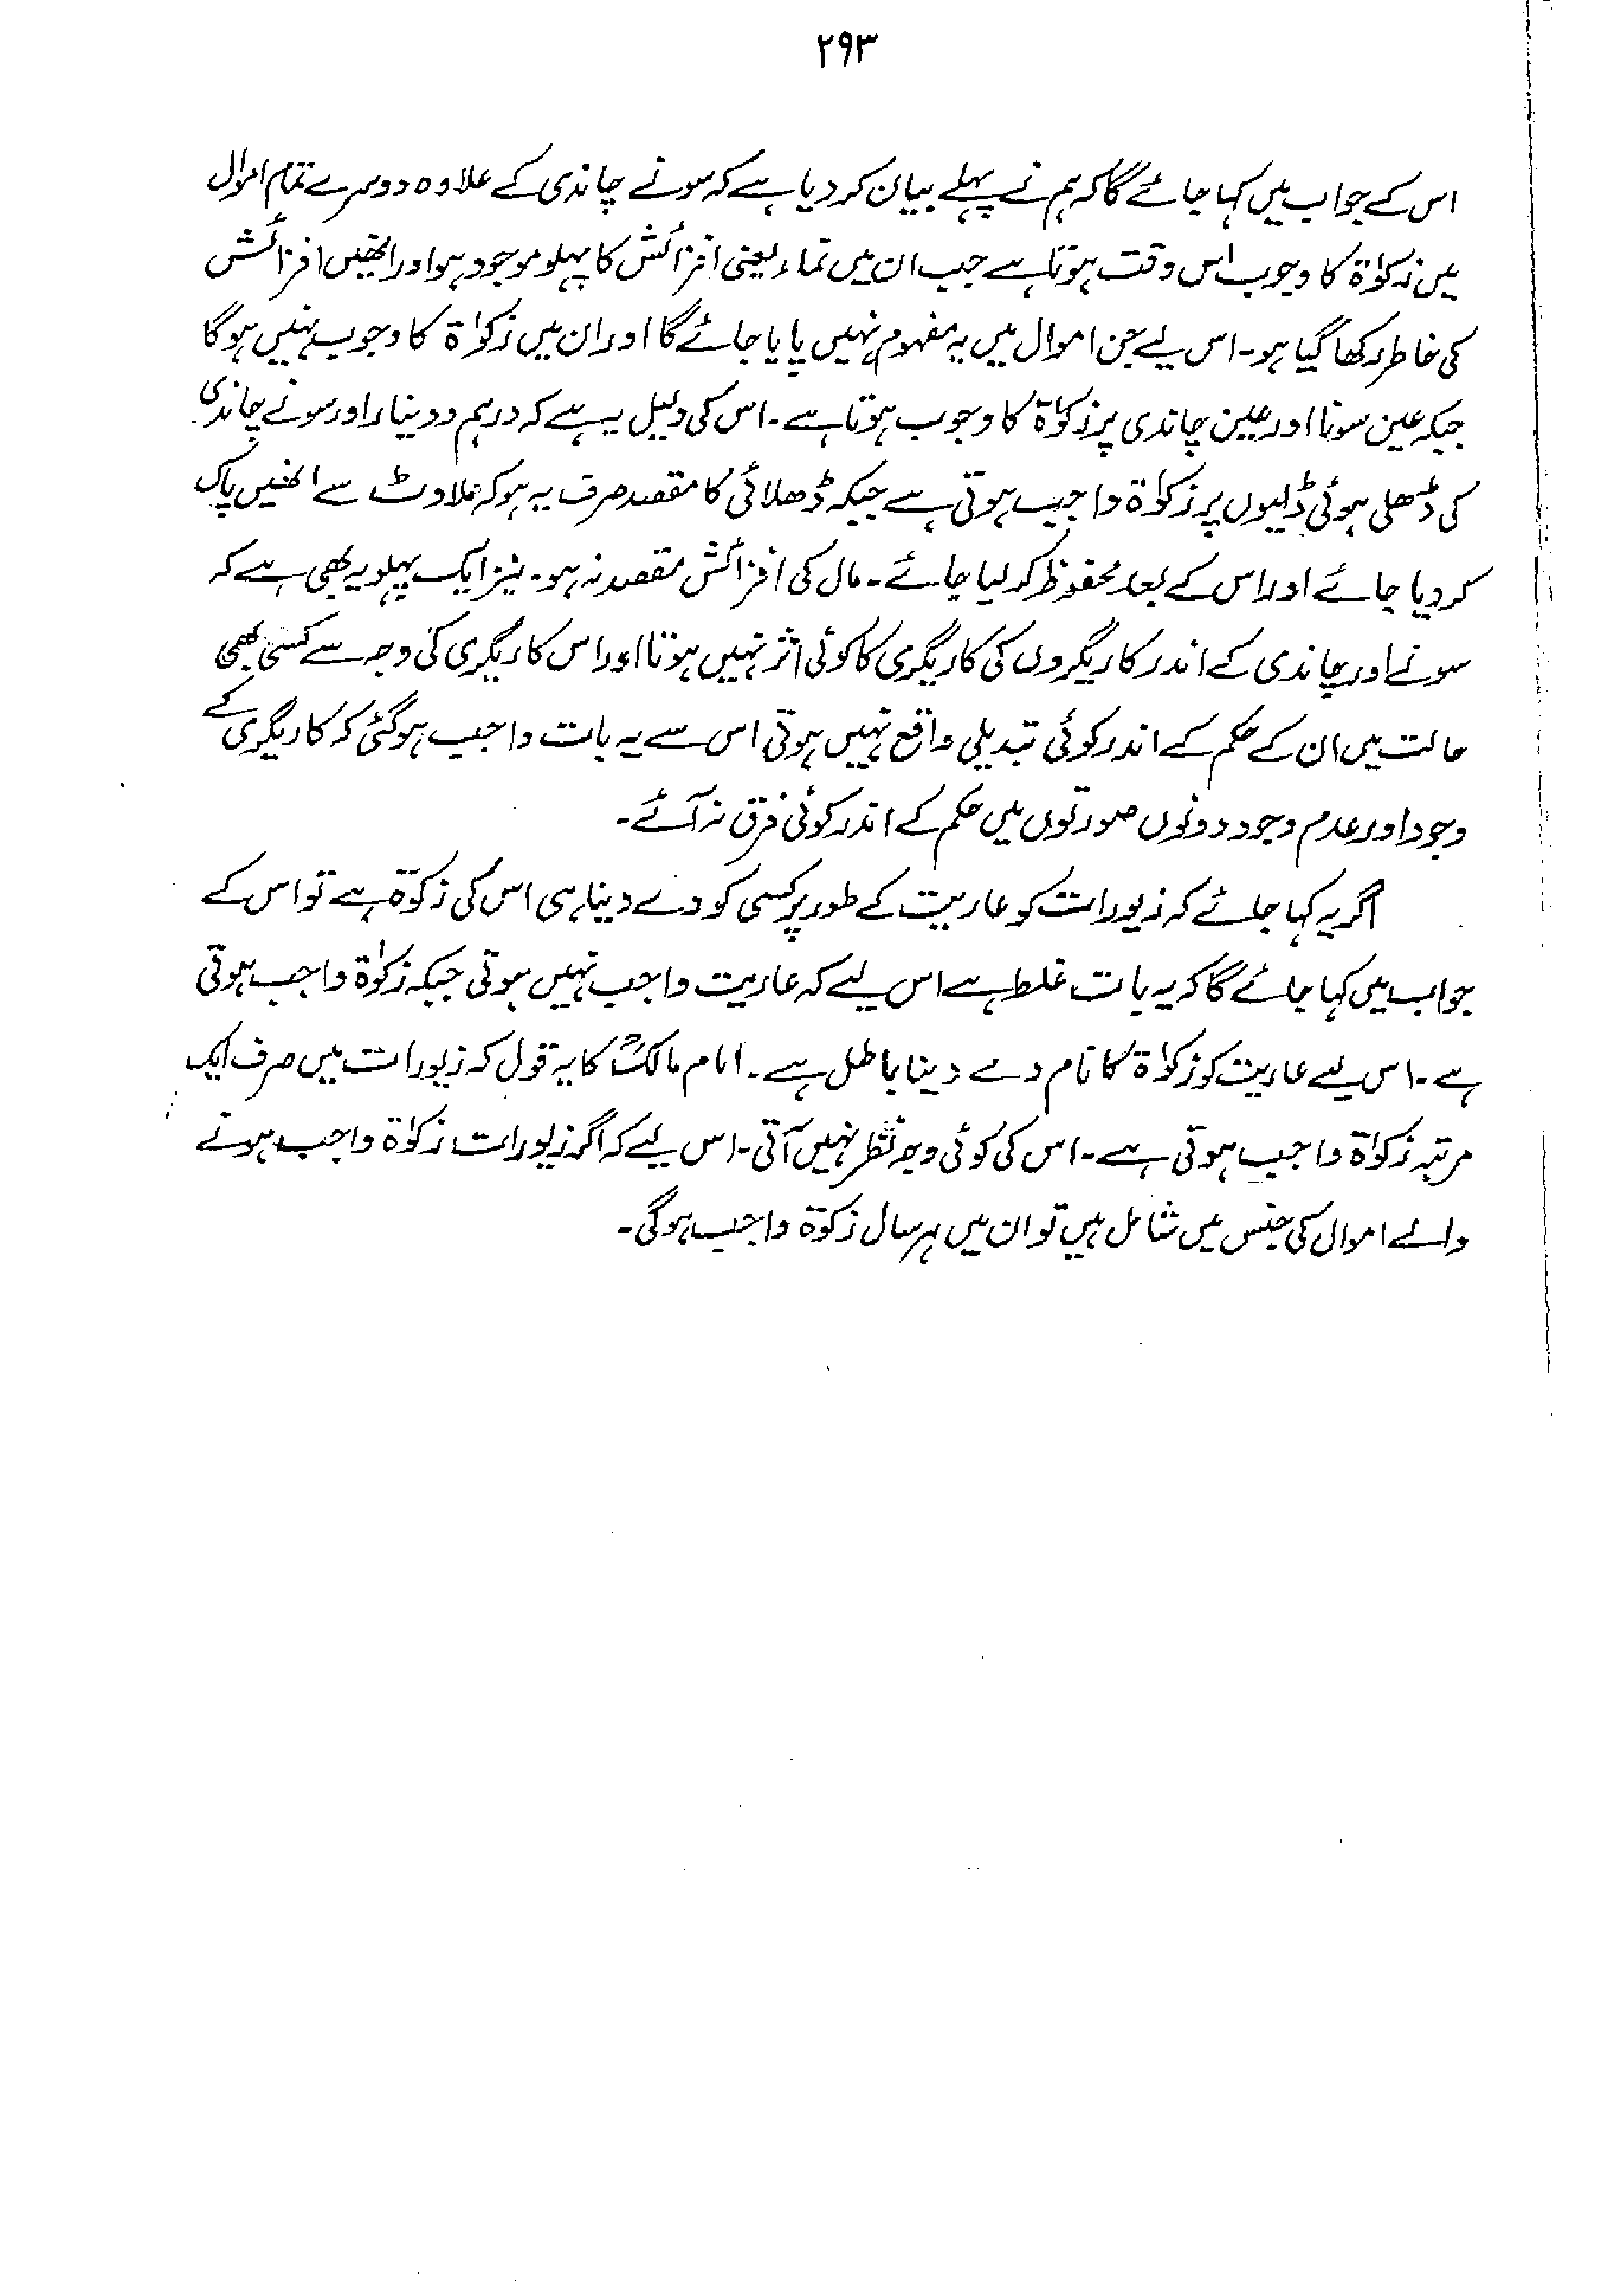 ۲۹۳
اس کے جواب میں کہا جائے گا کہ ہم نے پہلے بیان کر دیا ہے کہ سونے چاندی کے علاوہ دوسرے تمام اموال
میں زکوٰۃ کا وجوب اس وقت ہوتا ہے جب ان میں نماء یعنی افزائش کا پہلو موجود ہو اور انھیں افزائش
کی خاطر رکھا گیا ہو۔ اس لیے جن اموال میں یہ مفہوم نہیں پایا جائے گا اور ان میں زکوٰۃ کا وجوب نہیں ہوگا
جبکہ عین سونا اور عین چاندی پر زکوٰۃ کا وجوب ہوتا ہے۔ اس کی دلیل یہ ہے کہ درہم و دینار اور سونے چاندی
کی ڈھلی ہوئی ڈلیوں پر زکوٰۃ واجب ہوتی ہے جبکہ ڈھلائی کا مقصد صرف یہ ہو کہ ملاوٹ سے انھیں پاک
کر دیا جائے اور اس کے بعد محفوظ کر لیا جائے۔ مال کی افزائش مقصد نہ ہو۔ نیز ایک پہلو یہ بھی ہے کہ
سونے اور چاندی کے اندر کاریگروں کی کاریگری کا کوئی اثر نہیں ہوتا اور اس کاریگری کی وجہ سے کسی بھی
حالت میں ان کے حکم کے اندر کوئی تبدیلی واقع نہیں ہوتی اس سے یہ بات واجب ہوگئی کہ کاریگری کے
وجود اور عدم وجود دونوں صورتوں میں حکم کے اندر کوئی فرق نہ آئے۔
اگر یہ کہا جائے کہ زیورات کو عاریت کے طور پر کسی کو دے دینا ہی اس کی زکوٰۃ ہے تو اس کے
جواب میں کہا جائے گا کہ یہ بات غلط ہے اس لیے کہ عاریت واجب نہیں ہوتی جبکہ زکوٰۃ واجب ہوتی
ہے۔ اس لیے عاریت کو زکوٰۃ کا نام دے دینا باطل ہے۔ امام مالکؒ کا یہ قول کہ زیورات میں صرف ایک
مرتبہ زکوٰۃ واجب ہوتی ہے۔ اس کی کوئی وجہ نظر نہیں آتی۔ اس لیے کہ اگر زیورات زکوٰۃ واجب ہونے
والے اموال کی جنس میں شامل ہیں تو ان میں ہر سال زکوٰۃ واجب ہوگی۔